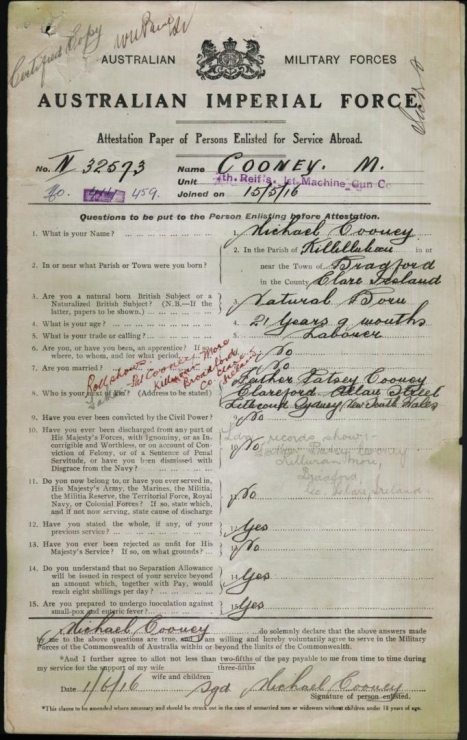 Certified Copy
AUSTRALIAN MILITARY FORCES
AUSTRALIAN IMPERIAL FORCE
Attestation Paper of Persons Enlisted for Service Abroad.
No. N 32573 Name COONEY. M.
Unit 7th. Reif's. 1st. Machine Gun Co
459. Joined on 15/5/16
Questions to be put to the Person Enlisting before Attestation.
1. What is your Name? 1. Michael Cooney
2. In or near what Parish or Town were you born? 2. In the Parish of in or
near the Town of Bradford
in the County Clare Ireland
3. Are you a natural born British Subject or a
Naturalized British Subject? (N.B.—If the
latter, papers to be shown.) 3. Natural Born
4. What is your age? 4. 21 years 9 months
5. What is your trade or calling? 5. Labourer
6. Are you, or have you been, an apprentice? If so
where, to whom, and for what period. 6. No
7. Are you married? 7. No
8. Who is your next of kin? (Address to be stated) 8. Father Patsey Cooney
Clareford Allan Street
Sydney New South Wales
9. Have you ever been convicted by the Civil Power? 9. No
10. Have you ever been discharged from any part of
His Majesty's Forces, with Ignominy, or as In-
corrigible and Worthless, or on account of Con-
viction of Felony, or of a Sentence of Penal
Servitude, or have you been dismissed with
Disgrace from the Navy? 10. No
records show:-
Patsey Cooney
Co. Clare, Ireland
11. Do you now belong to, or have you ever served in,
His Majesty's Army, the Marines, the Militia,
the Militia Reserve, the Territorial Force, Royal
Navy, or Colonial Forces? If so, state which,
and if not now serving, state cause of discharge 11. No
12. Have you stated the whole, if any, of your
previous service? 12. Yes
13. Have you ever been rejected as unfit for His
Majesty's Service? If so, on what grounds? 13. No
14. Do you understand that no Separation Allowance
will be issued in respect of your service beyond
an amount which, together with Pay, would
reach eight shillings per day? 14. Yes
15. Are you prepared to undergo inoculation against
small-pox and enteric fever? 15. Yes
I, Michael Cooney do solemnly declare that the above answers made
by me to the above questions are true, and I am willing and hereby voluntarily agree to serve in the Military
Forces of the Commonwealth of Australia within or beyond the limits of the Commonwealth.
*And I further agree to allot not less than two-fifths of the pay payable to me from time to time during
three-fifths
my service for the support of my wife
wife and children
Date 1/6/16 Sgd Michael Cooney
Signature of person enlisted.
*This clause to be amended where necessary and should be struck out in the case of unmarried men or widowers without children under 18 years of age.